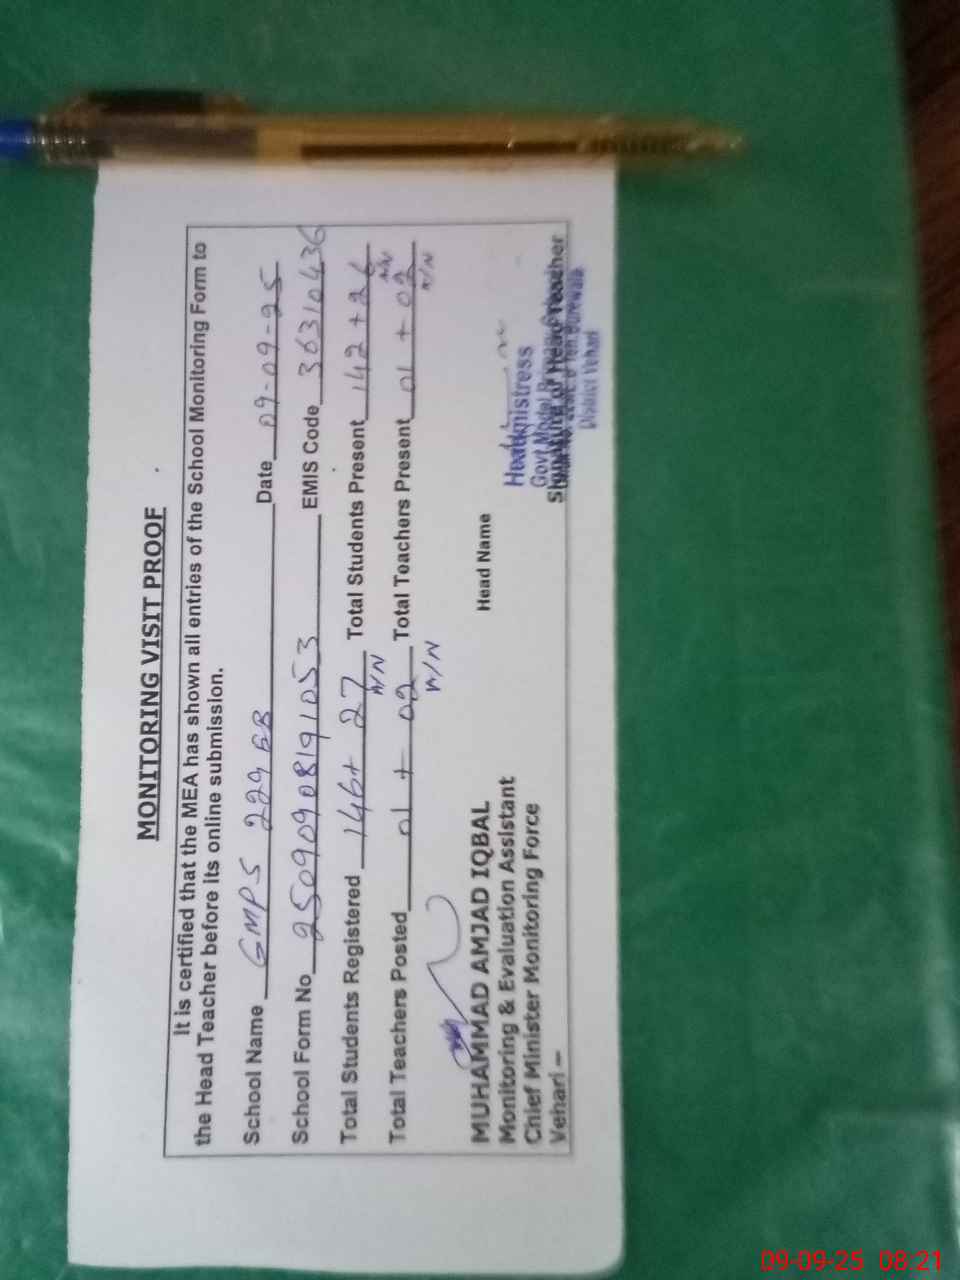 MONITORING VISIT PROOF
It is certified that the MEA has shown all entries of the School Monitoring Form to
the Head Teacher before its online submission.
School Name GMPS 229 EB Date 09-09-25
School Form No 25090908191053 EMIS Code 36310436
Total Students Registered 146+ 27 N/N Total Students Present 142 + 26 N/N
Total Teachers Posted 01 + 02 N/N Total Teachers Present 01 + 02 N/N
MUHAMMAD AMJAD IQBAL
Monitoring & Evaluation Assistant
Chief Minister Monitoring Force
Vehari –
Head Name
Headmistress
Govt. Model
Signature of Head Teacher
District Vehari
09-09-25 08:21